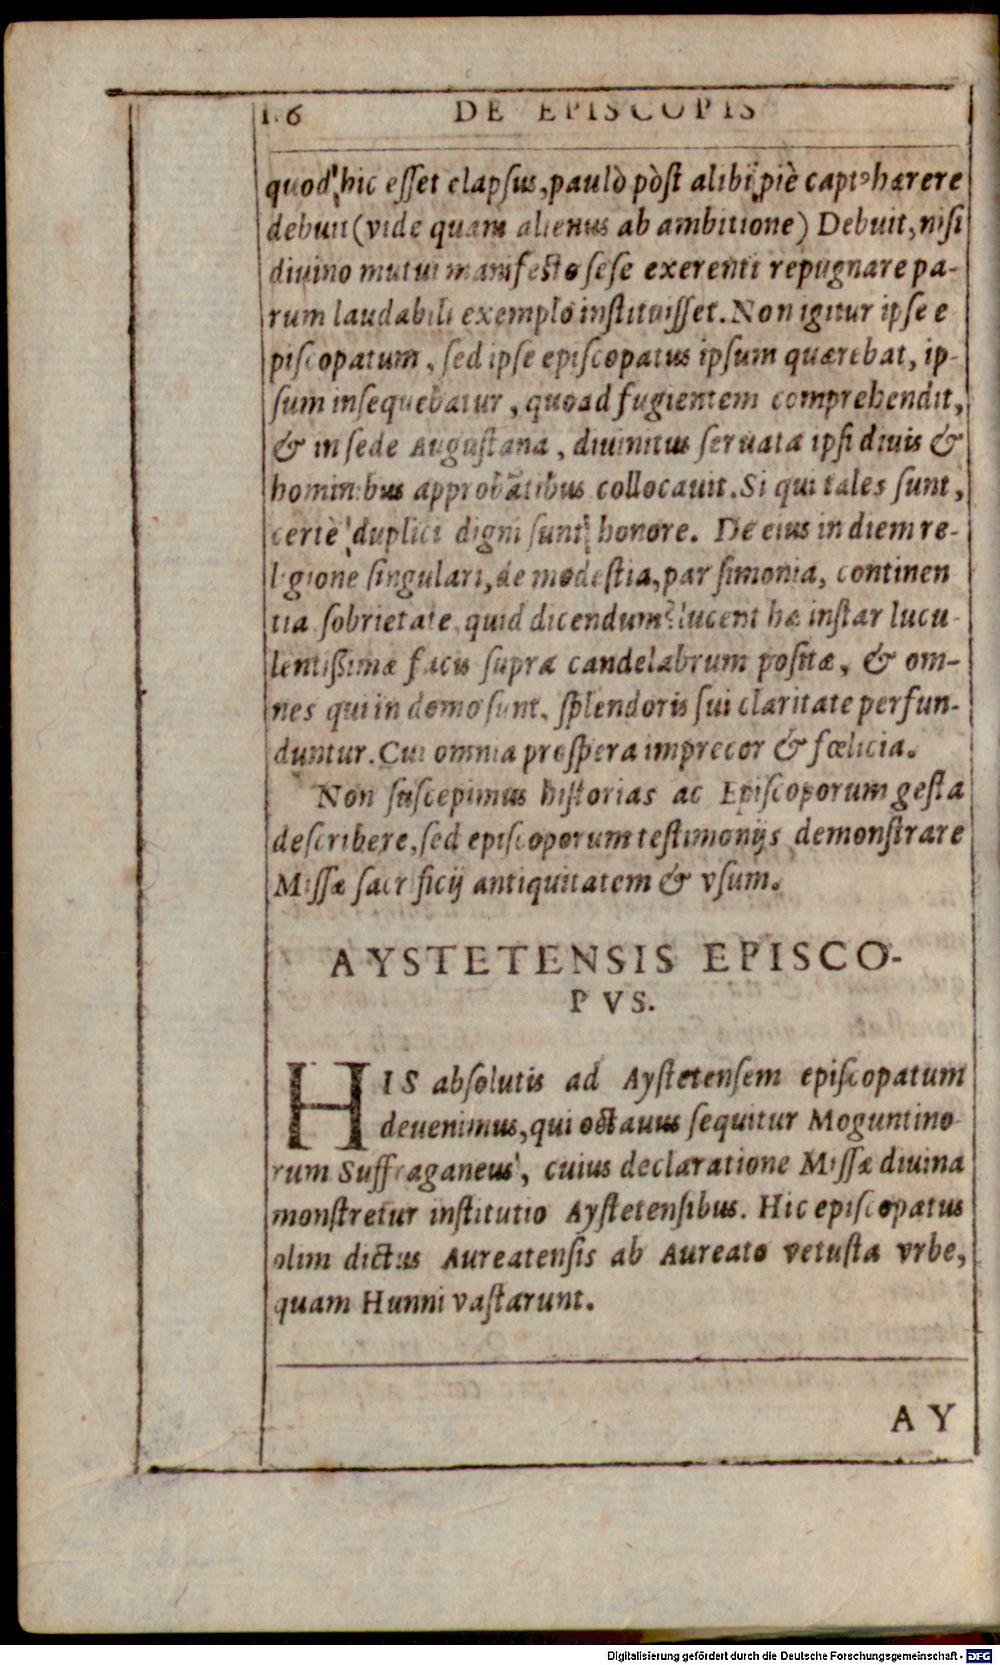 1.6 DE EPISCOPIS
quod hic esset elapsus, paulò pòst alibi piè captꝰ hærere
debuit (vide quam alienus ab ambitione) Debuit, nisi
diuino nutui manifesto sese exerenti repugnare pa-
rum laudabili exemplo instituisset. Non igitur ipse e
piscopatum, sed ipse episcopatus ipsum quærebat, ip-
sum insequebatur, quoad fugientem comprehendit,
& in sede Augustana, diuinitus seruata ipsi diuis &
hominibus approbātibus collocauit. Si qui tales sunt,
certè duplici digni sunt honore. De eius in diem re-
ligione singulari, de modestia, parsimonia, continen
tia sobrietate quid dicendum? lucent hæ instar lucu-
lentißimæ facis supra candelabrum positæ, & om-
nes qui in domo sunt, splendoris sui claritate perfun-
duntur. Cui omnia prospera imprecor & fœlicia.
Non suscepimus historias ac Episcoporum gesta
describere, sed episcoporum testimonijs demonstrare
Missæ sacrificij antiquitatem & vsum.
AYSTETENSIS EPISCO-
PVS.
HIS absolutis ad Aystetensem episcopatum
deuenimus, qui octauus sequitur Moguntino
rum Suffraganeus, cuius declaratione Missæ diuina
monstretur institutio Aystetensibus. Hic episcopatus
olim dictus Aureatensis ab Aureato vetusta vrbe,
quam Hunni vastarunt.
AY
Digitalisierung gefördert durch die Deutsche Forschungsgemeinschaft - DFG